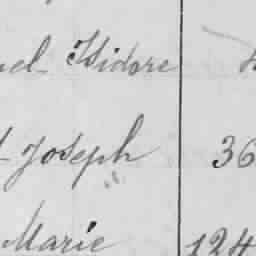 Isidore
Joseph 36
Marie 124